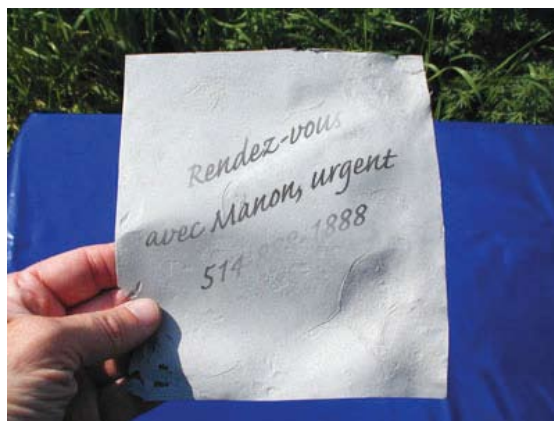 Rendez-vous
avec Manon, urgent
514 -1888